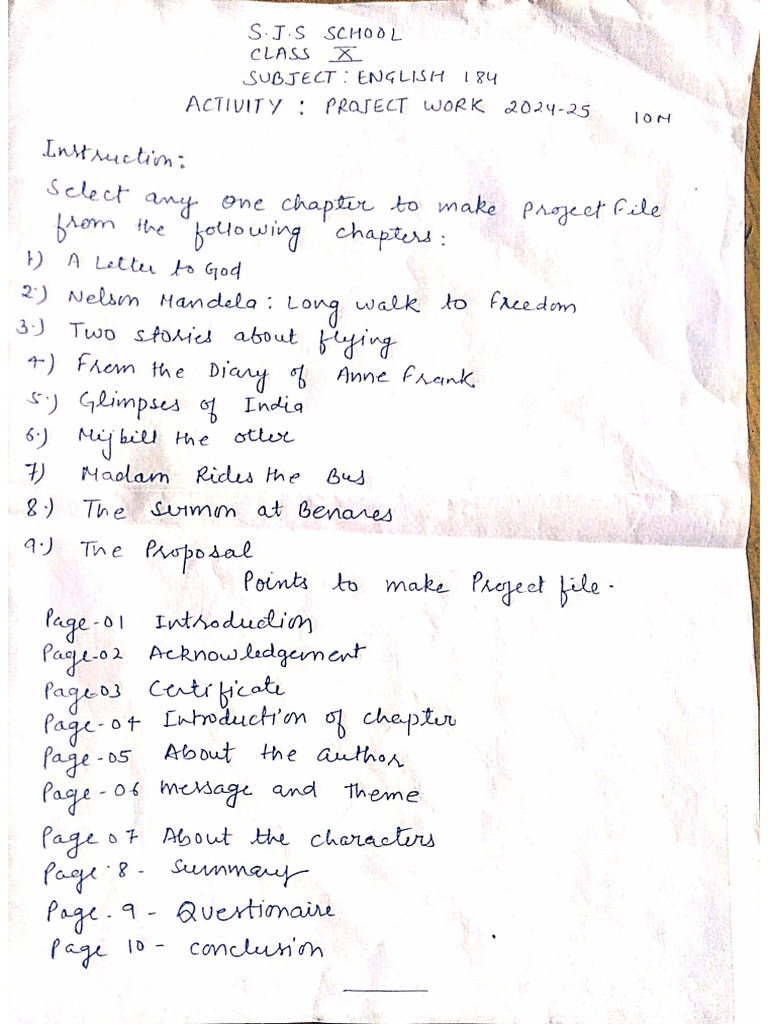 S.J.S SCHOOL
CLASS X
SUBJECT: ENGLISH 184
ACTIVITY : PROJECT WORK 2024-25 10M
Instruction:
Select any one chapter to make project file
from the following chapters:
1) A Letter to God
2.) Nelson Mandela: Long walk to freedom
3.) Two stories about flying
4) From the Diary of Anne Frank
5.) Glimpses of India
6.) Mijbill the otter
7) Madam Rides the Bus
8.) The Sermon at Benares
9.) The Proposal
Points to make Project file.
Page-01 Introduction
Page-02 Acknowledgement
Page-03 Certificate
Page-04 Introduction of chapter
Page-05 About the author
Page-06 message and Theme
Page 07 About the characters
Page 8- Summary
Page. 9 - Questionaire
Page 10 - conclusion